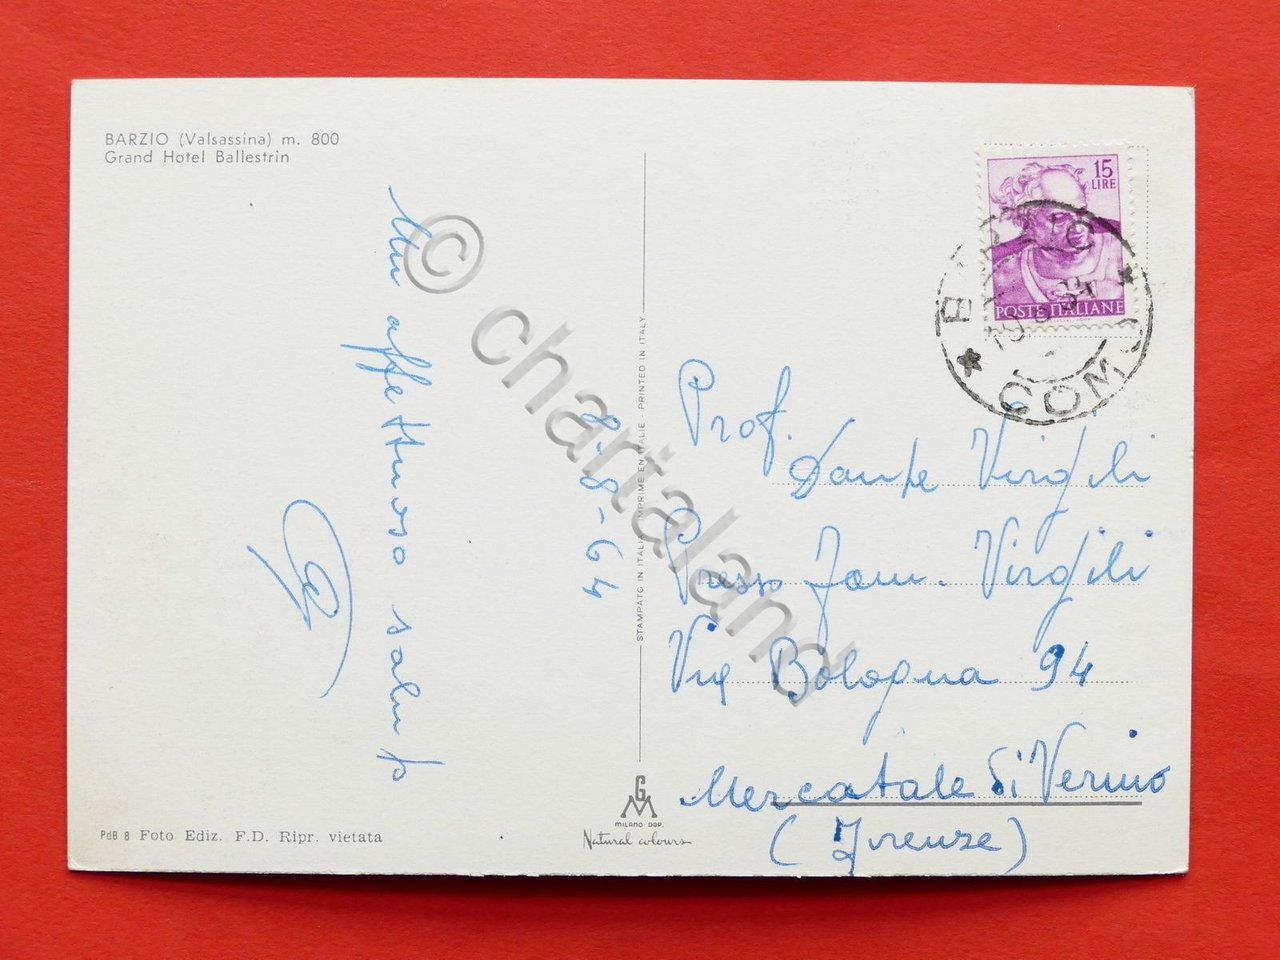 BARZIO (Valsassina) m. 800
Grand Hotel Ballestrin
Un affettuoso saluto
8-64
15
LIRE
POSTE ITALIANE
COMO
Prof.
Dante Virgili
Presso Fam. Virgili
Via Bologna 94
Mercatale di Vernio
(Firenze)
STAMPATO IN ITALIA - IMPRIMÉ EN ITALIE - PRINTED IN ITALY
GM
MILANO DEP.
Natural colours
PdB 8 Foto Ediz. F.D. Ripr. vietata
© chartaland